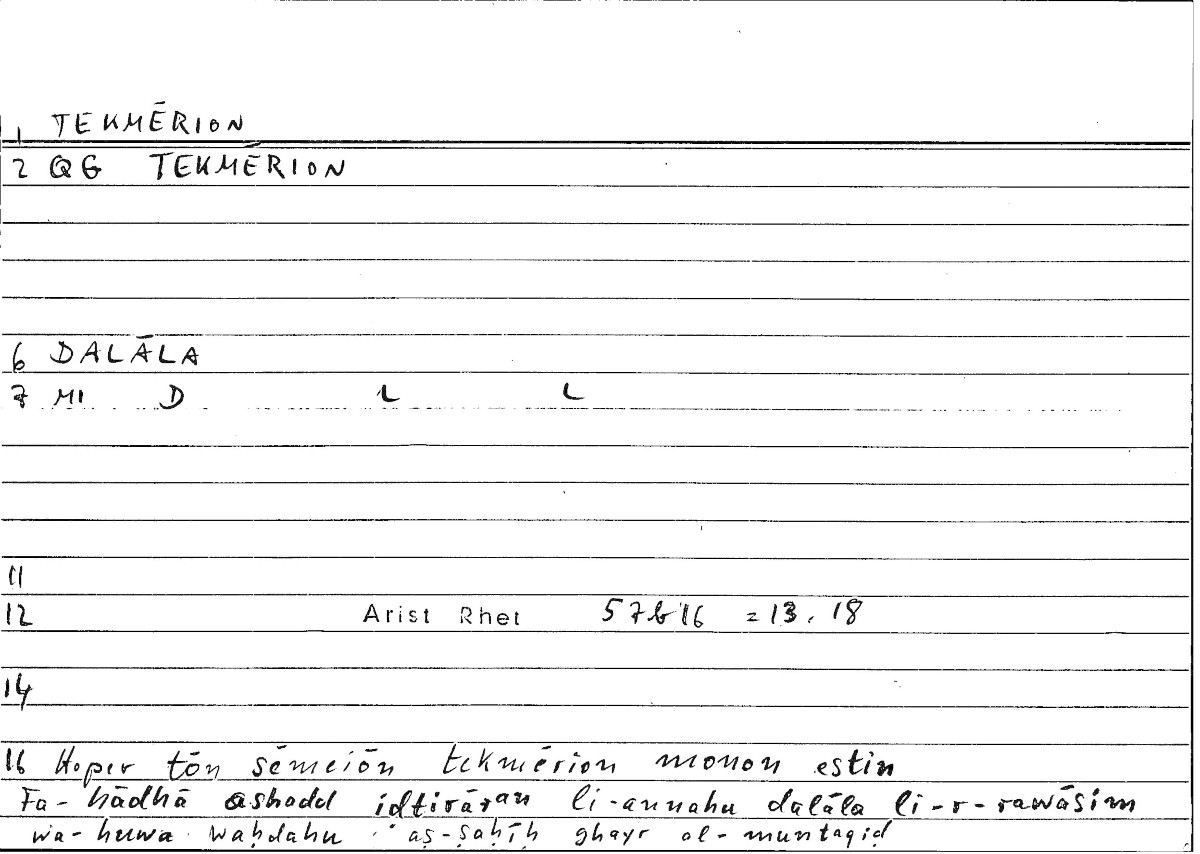 1 TEKMĒRION
2 QG TEKMĒRION
6 DALĀLA
7 MI D L L
11
12 Arist Rhet 57b16 = 13,18
14
16 Hoper tōn sēmeiōn tekmērion monon estin
Fa-hādhā ashadd idtirāran li-annahu dalāla li-r-rawāsim
wa-huwa waḥdahu aṣ-ṣaḥīḥ ghayr al-muntaqiḍ